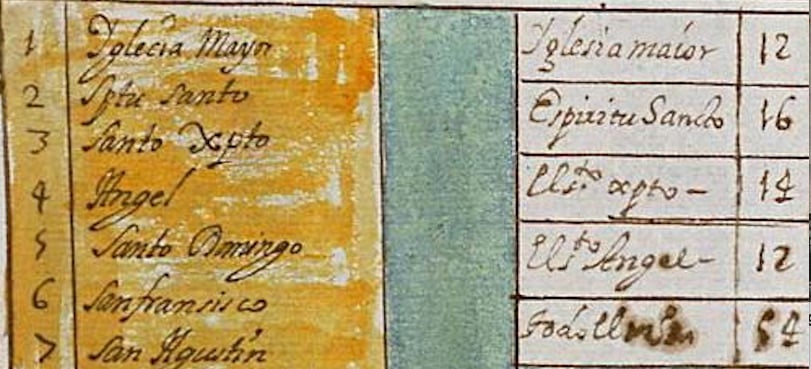 1 Yglecia Mayor
2 Sptu santo
3 santo xpto
4 Angel
5 Santo Domingo
6 sanfransisco
7 san Agustin
Iglesia maior 12
Espiritu Sancto 16
El sto xpto - 14
El sto Angel - 12
54